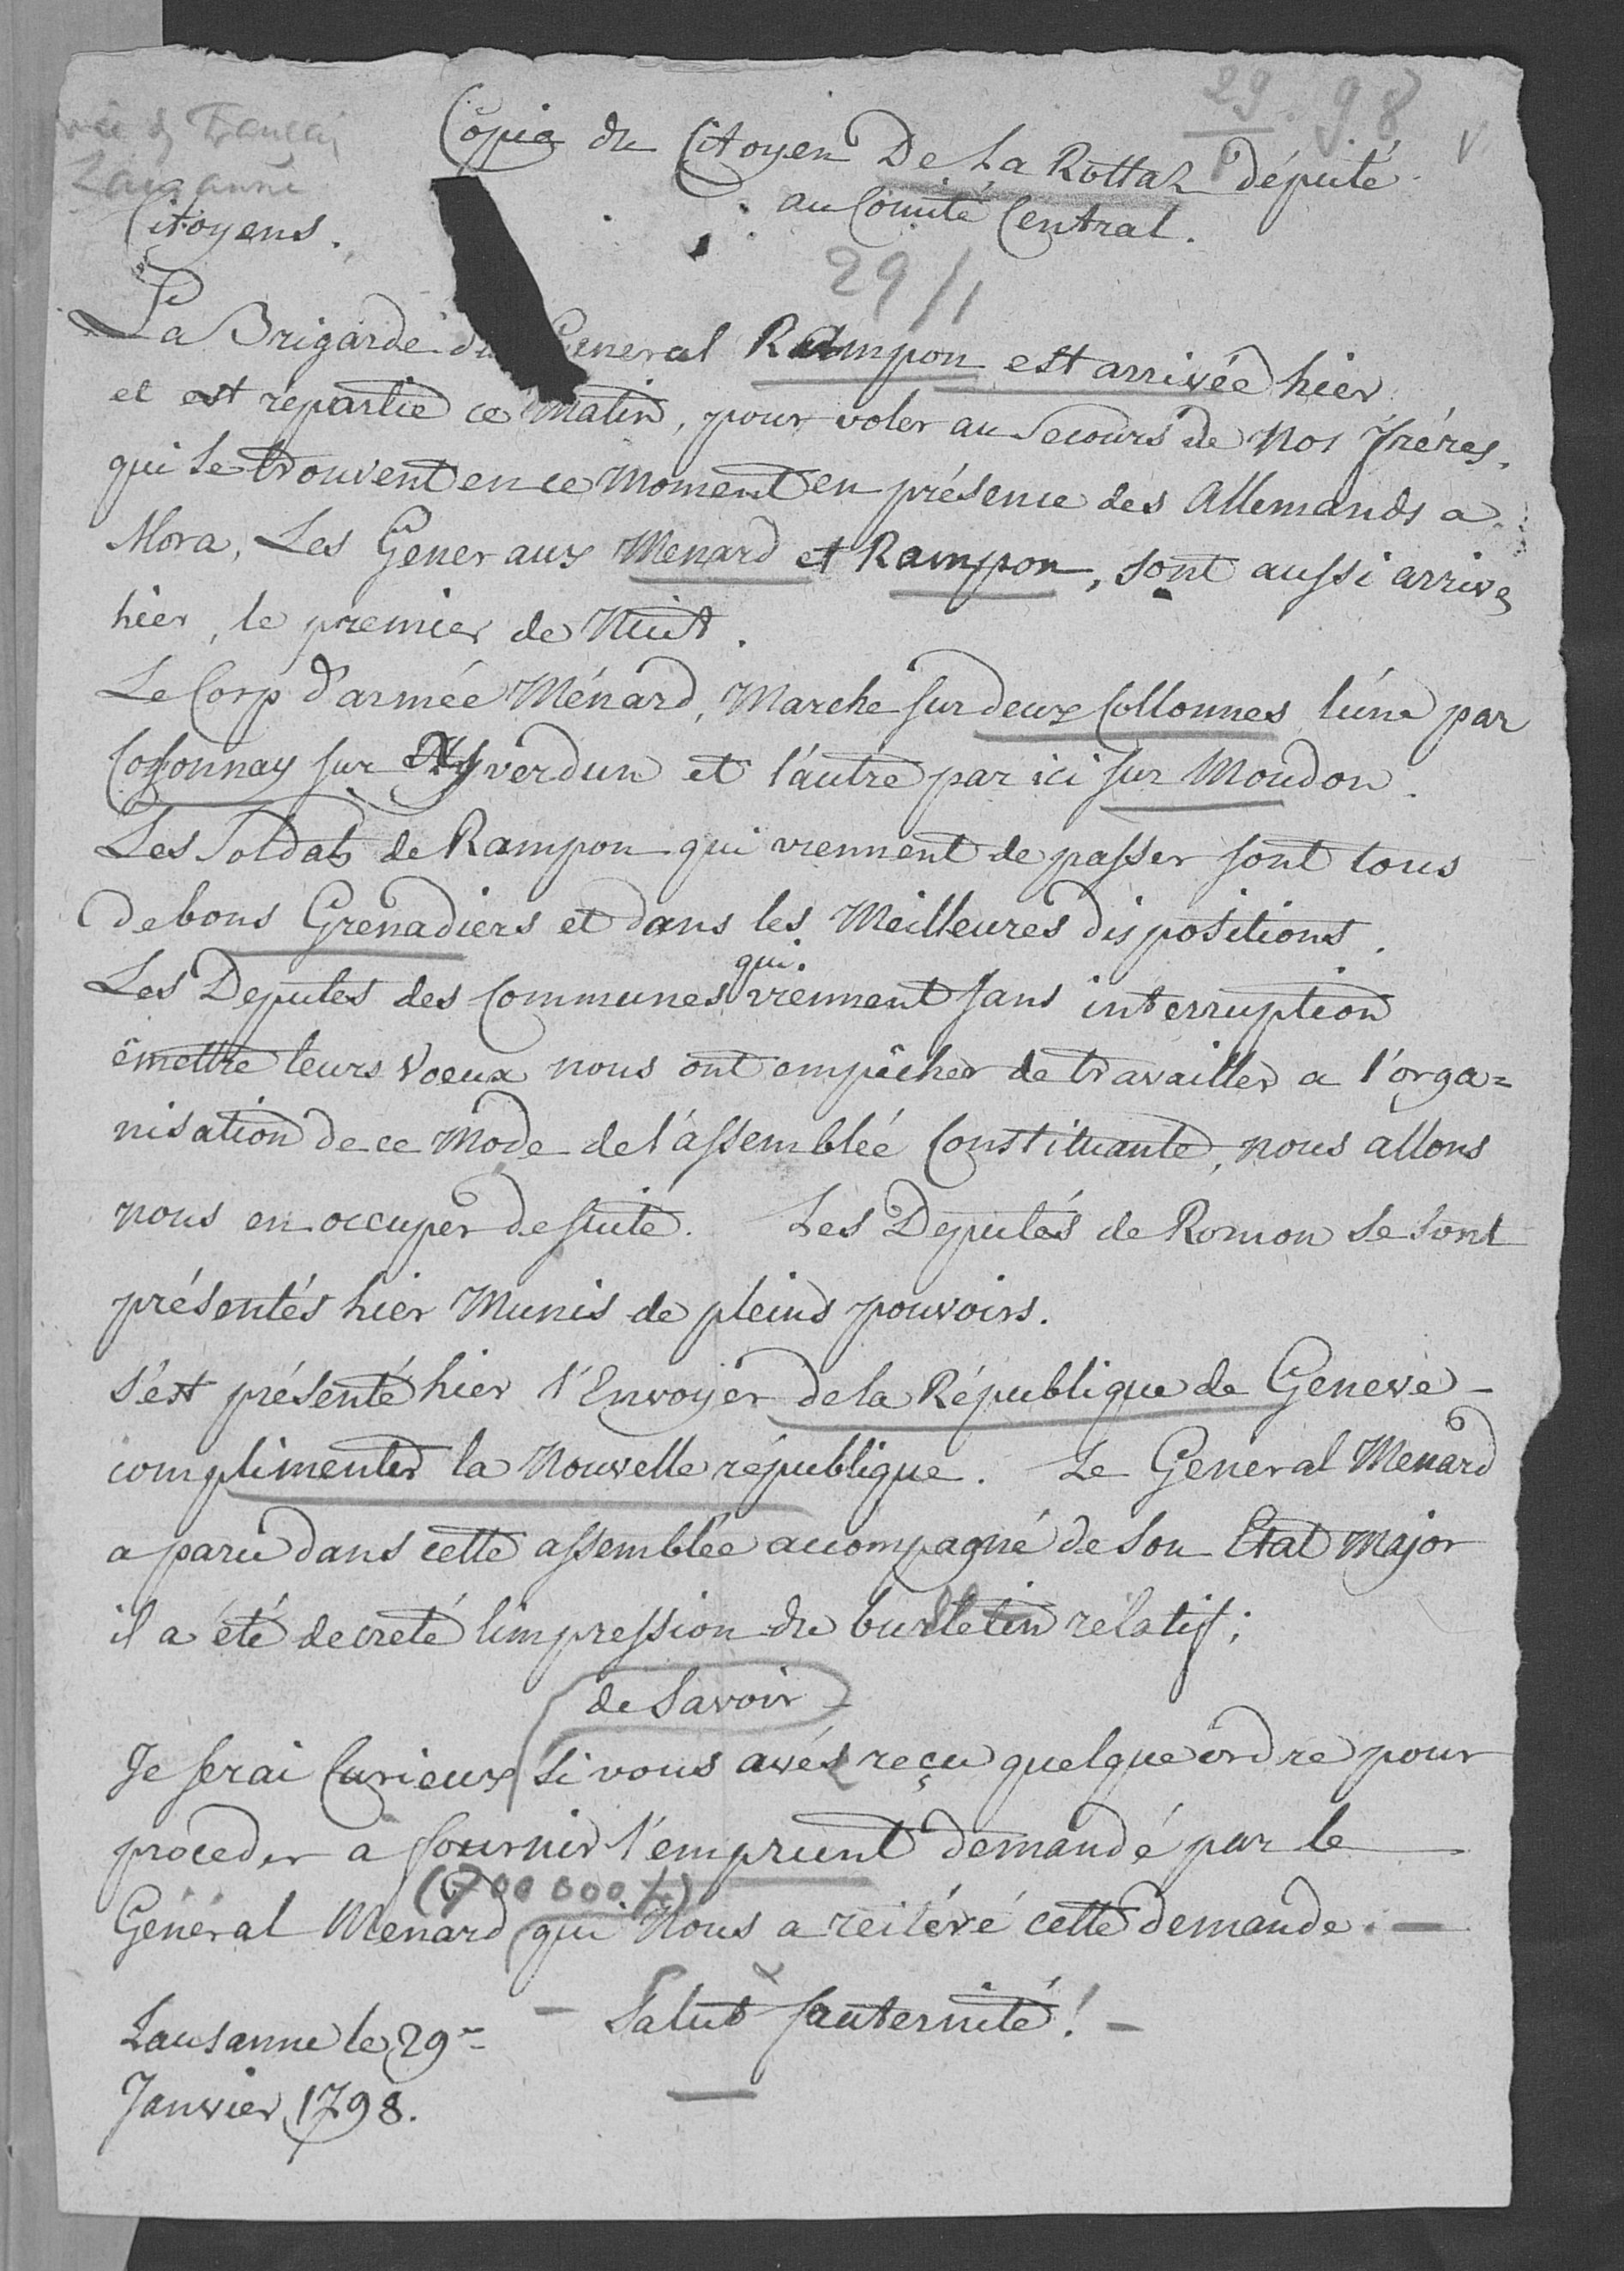 29.98 V
Lausanne
Copia du Citoyen De La Rottaz député
au Comité Central.
Citoyens.
29/1
La Brigarde du General Rampon est arrivée hier
et est répartie ce Matin, pour voler au Secours de Nos fréres,
qui se trouvent en ce Moment en présence des Allemands a
Mora, Les Generaux Menard et Rampon, sont aussi arrives
hier, le premier de Nuit.
Le Corp d'armée Ménard, Marche sur deux Collonnes l'une par
Cossonnay sur Yverdun et l'autre par ici sur Moudon.
Les Soldats de Rampon qui viennent de passer sont tous
de bons Grenadiers et dans les Meilleures dispositions.
Les Deputes des Communes qui viennent sans interruption
émettre leurs Voeux nous ont empêcher de travailler a l'orga=
nisation de ce Mode de l'assemblée Constituante, nous allons
nous en occuper de suite. Les Deputés de Romon se sont
présentés hier Munis de pleins pouvoirs.
s'est présenté hier l'Envoyer de la République de Geneve -
complimenter la Nouvelle république. Le General Menard
a paru dans cette assemblée accompagné de son Etat Major
il a été decreté l'impression du bulletin relatif;
de Savoir
Je serai Curieux si vous avés reçu quelque ordre pour
proceder a fournir l'emprunt demandé par le
(700 000 #)
Général Menard qui Nous a reitéré cette demande. -
- Salut & fauternité! -
Lausanne le 29
Janvier 1798.